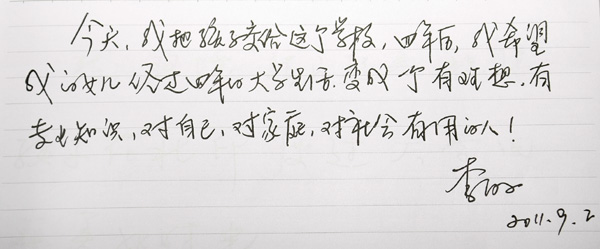 今天，我把孩子交给这个学校，四年后，我希望
我的女儿经过四年的大学生活变成一个有理想，有
专业知识，对自己，对家庭，对社会有用的人！
李
2011.9.2